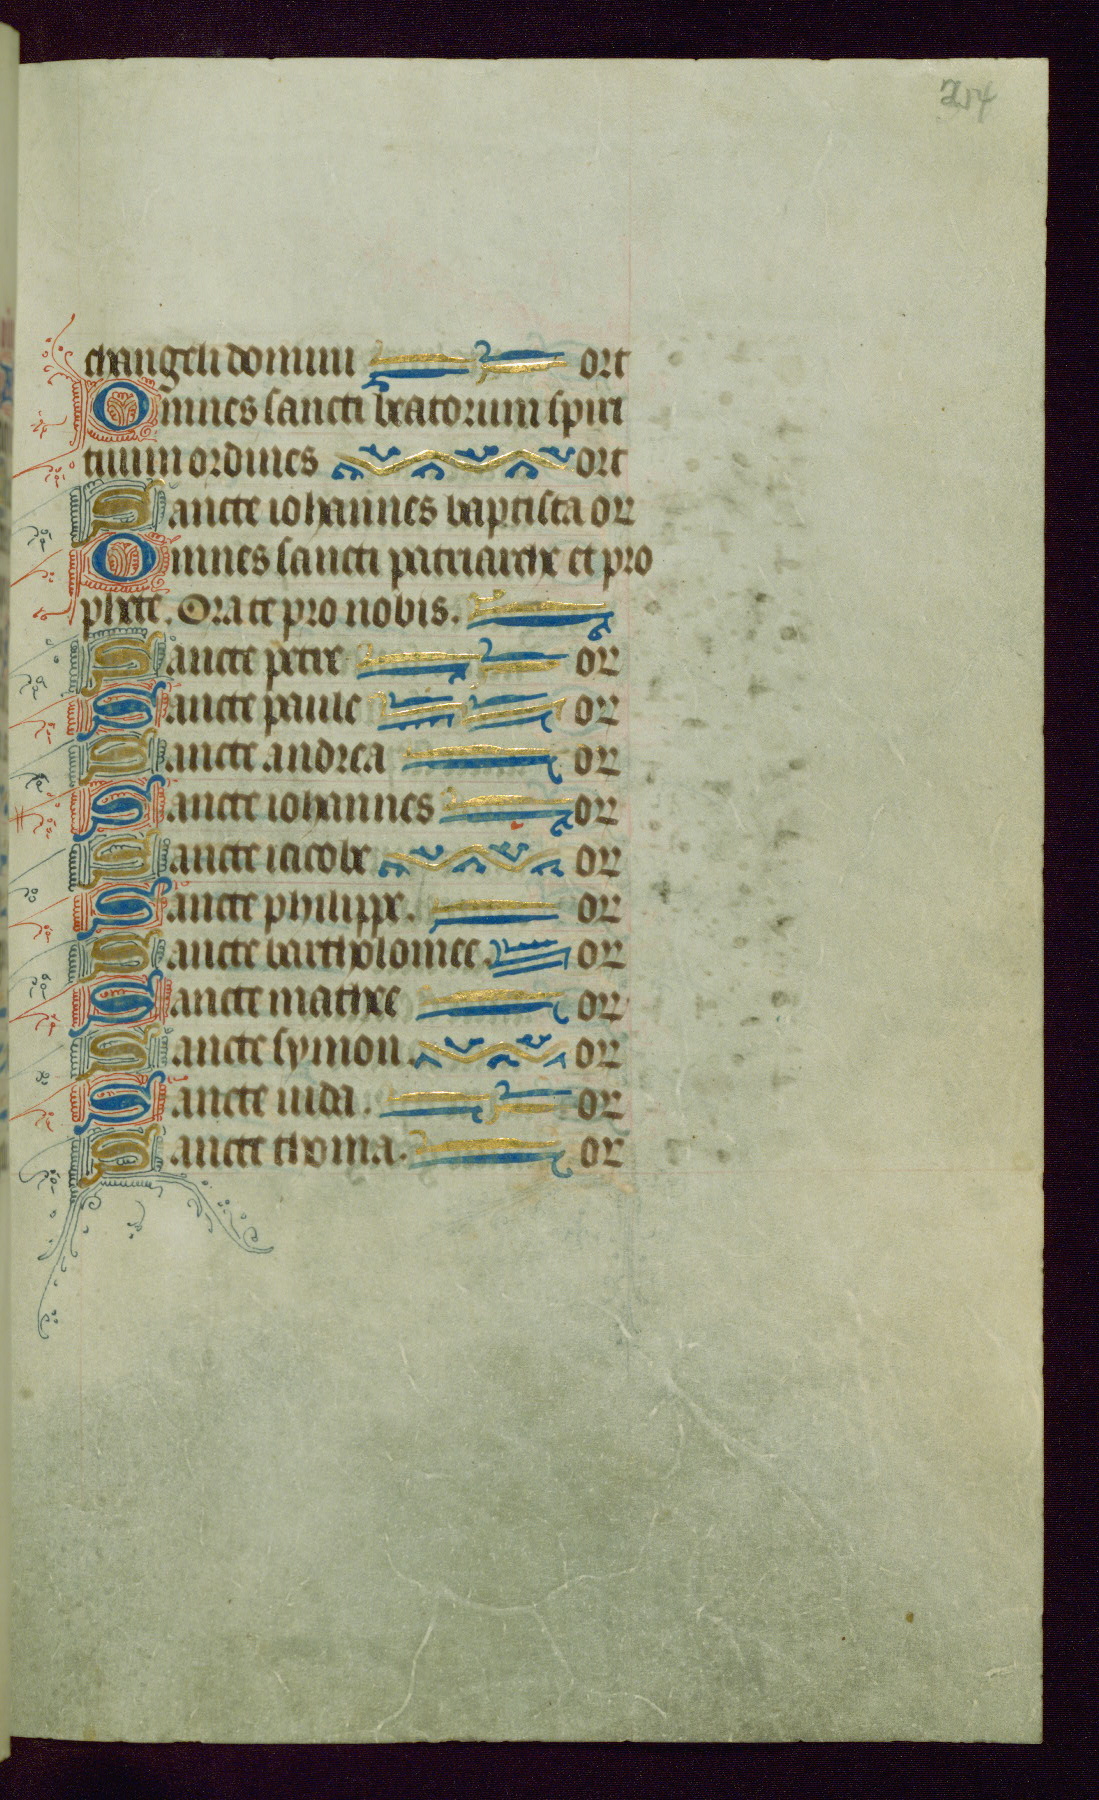 254
changeli domini ort
Om̄nes sancti beatorum spiri
tuum ordines ort
Sancte iohannes baptista or
Omnes sancti patriarche et pro
phete. Orate pro nobis.
Sancte petre or
Sancte paule or
Sancte andrea or
Sancte iohannes or
Sancte iacobe or
Sancte philippe. or
Sancte bartholomee. or
Sancte mathee or
Sancte symon. or
Sancte iuda. or
Sancte thoma. or